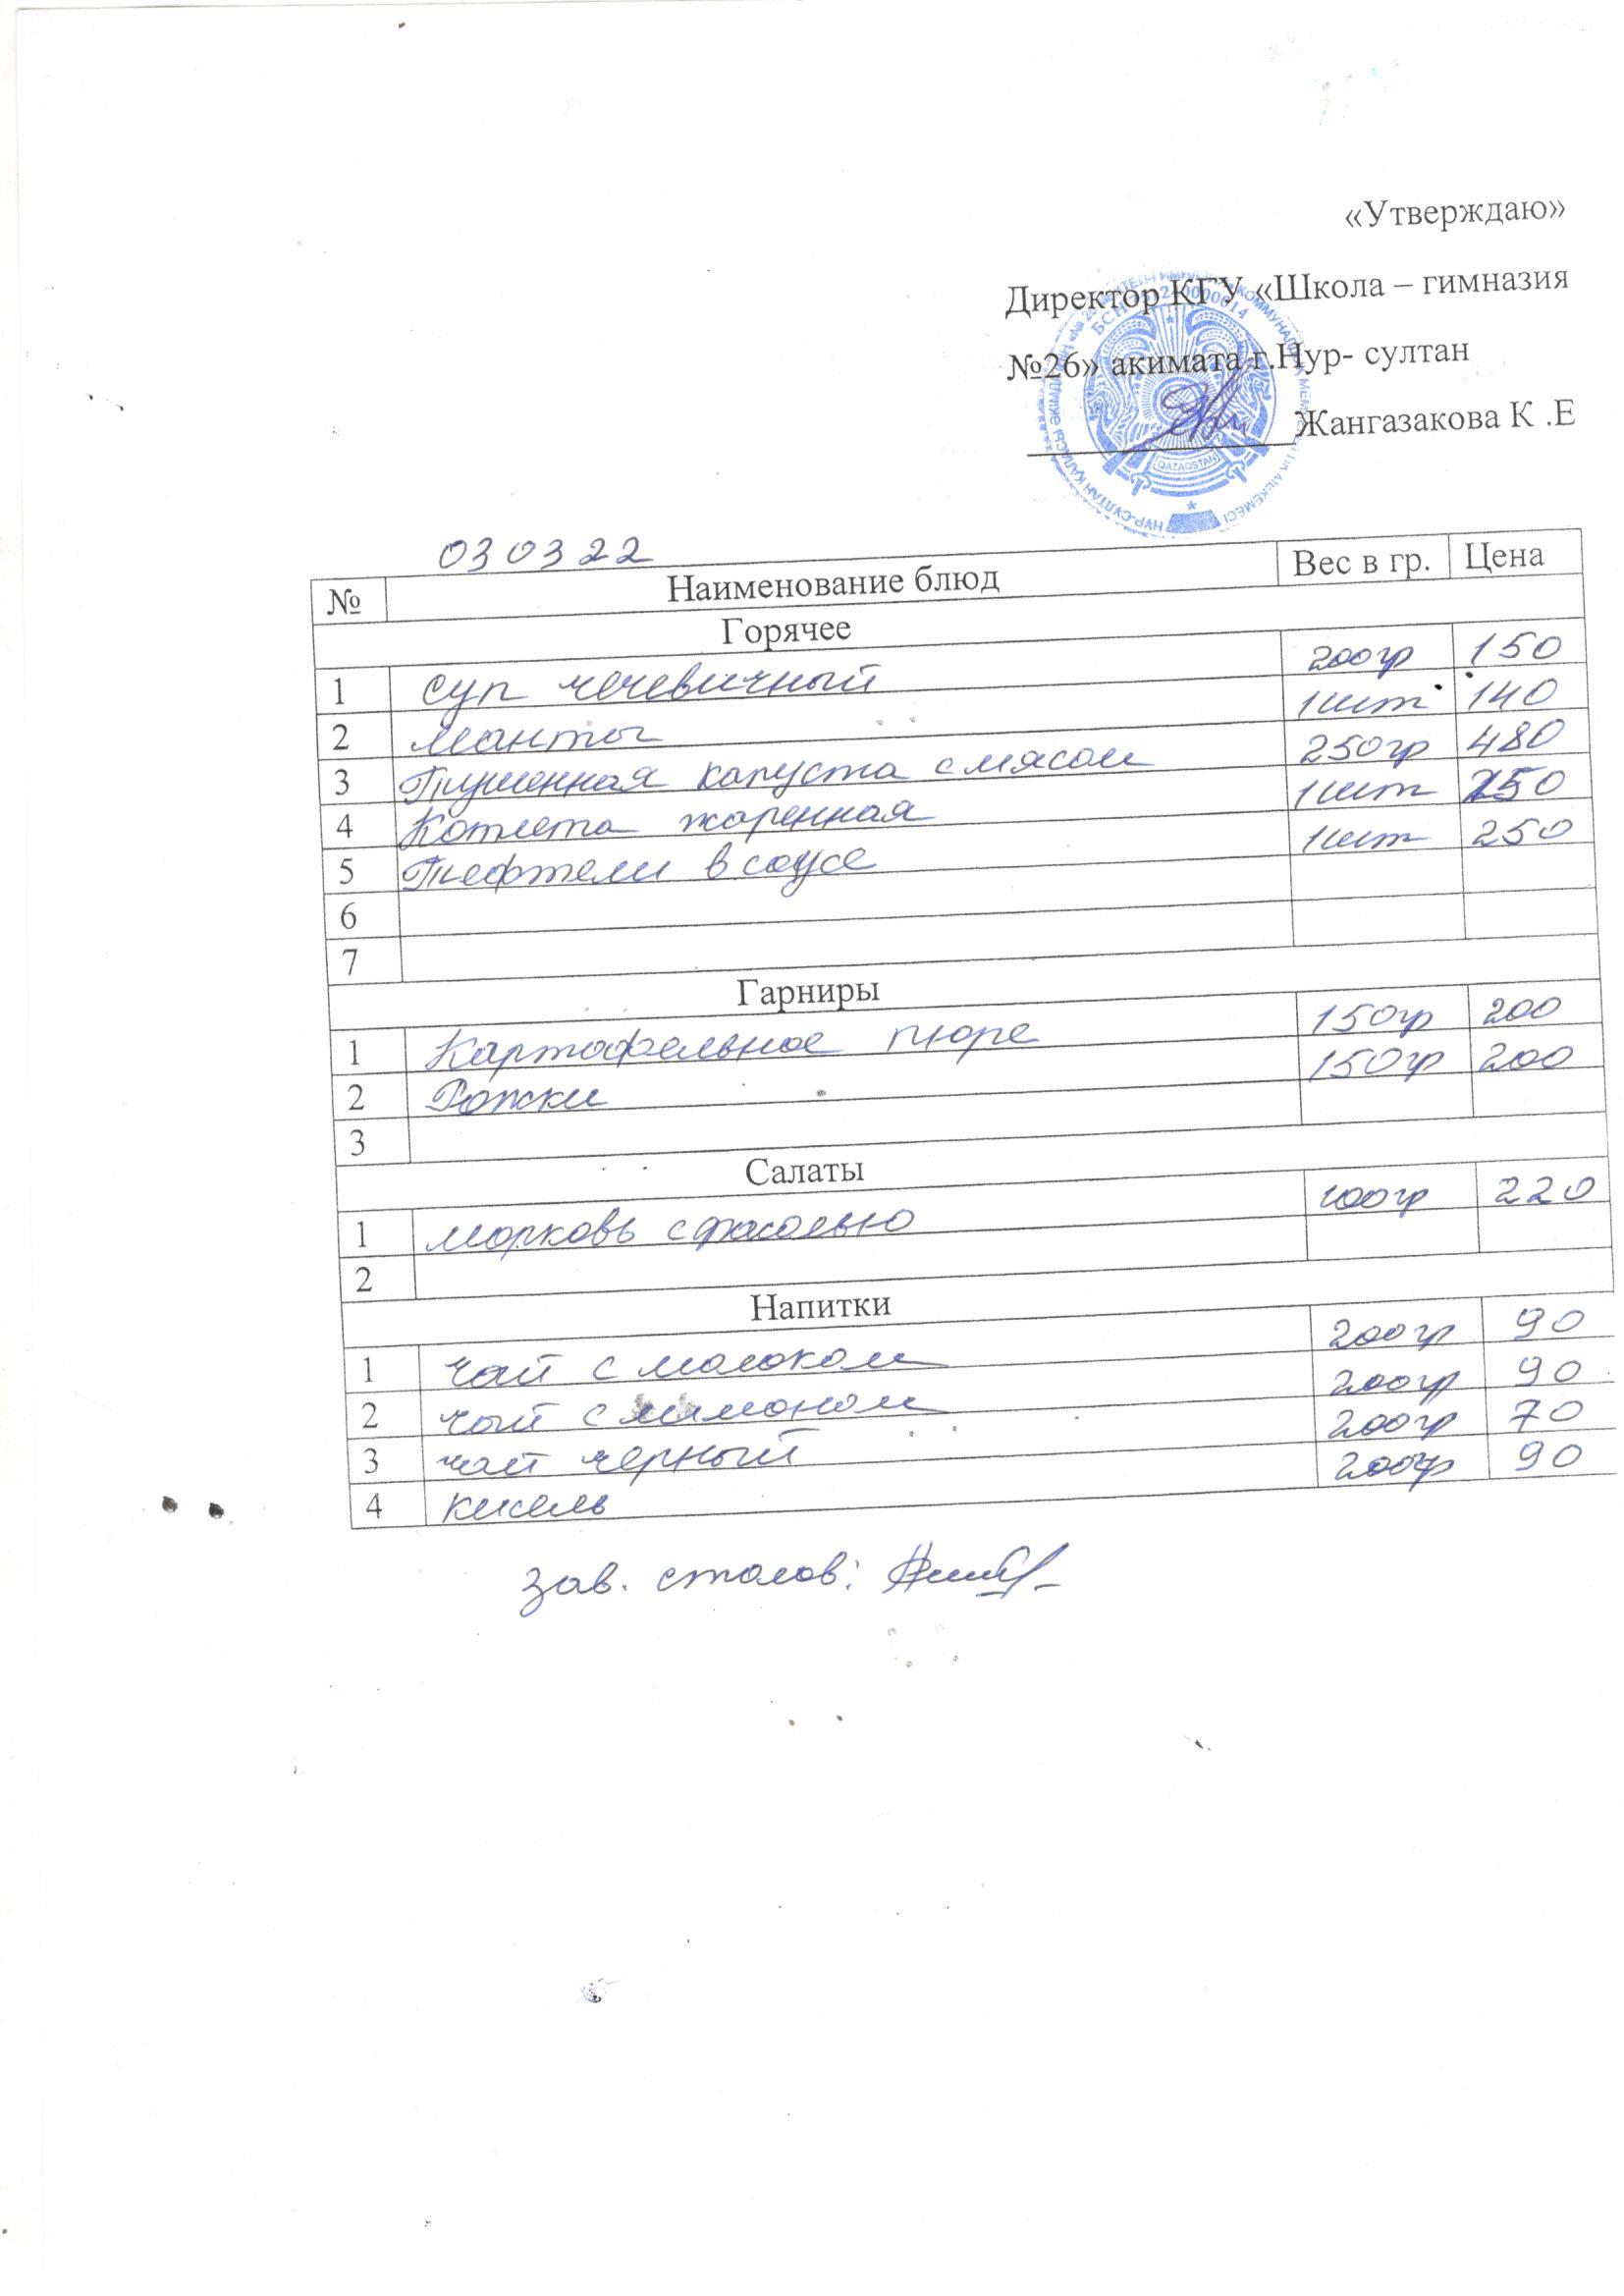 «Утверждаю»
Директор КГУ «Школа – гимназия
№26» акимата г.Нур- султан
Жангазакова К .Е
QAZAQSTAN
03 03 22
№ Наименование блюд Вес в гр. Цена
Горячее
1 суп чечевичный 200гр 150
2 манты 1шт 140
3 Тушенная капуста с мясом 250гр 480
4 Котлета жаренная 1шт 250
5 Тефтели в соусе 1шт 250
6
7
Гарниры
1 Картофельное пюре 150гр 200
2 Рожки 150гр 200
3
Салаты
1 морковь с фасолью 100гр 220
2
Напитки
1 чай с молоком 200гр 90
2 чай с лимоном 200гр 90
3 чай черный 200гр 70
4 кисель 200гр 90
зав. столов: